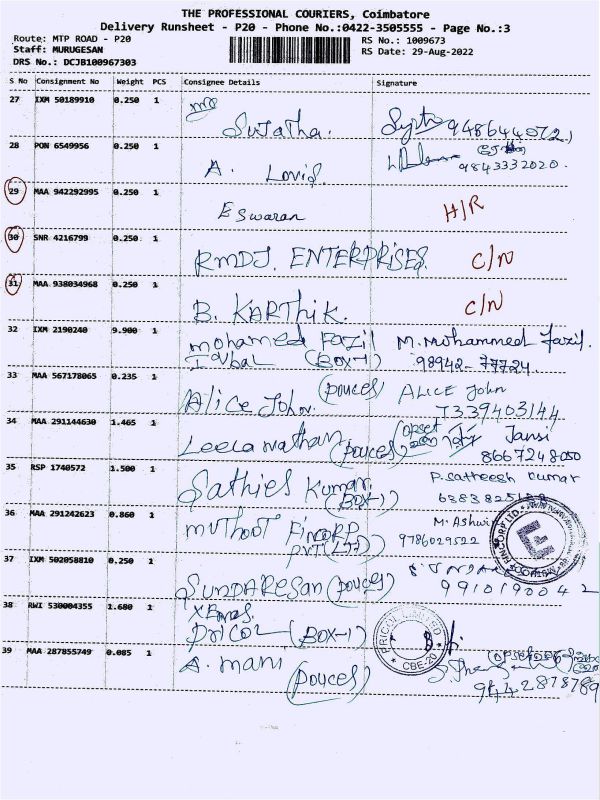 THE PROFESSIONAL COURIERS, Coimbatore
Delivery Runsheet - P20 - Phone No.:0422-3505555 - Page No.:3
Route: MTP ROAD - P20
RS No.: 1009673
Staff: MURUGESAN
RS Date: 29-Aug-2022
DRS No.: DCJB100967303
S No Consignment No Weight PCS Consignee Details Signature
27 IXM 50189910 0.250 1
Sujatha.
28 PON 6549956 0.250 1
A. Lovis.
9843332020.
29 MAA 942292995 0.250 1
Eswaran H/R
30 SNR 4216799 0.250 1
RMDJ. ENTERPRISES. C/N
31 MAA 938034968 0.250 1
B. KARTHIK. C/N
32 IXM 2190240 9.900 1
Mohamed Fazil M. Mohammed Fazil.
Iqbal (BOX-1) 98942-77724
33 MAA 567178065 0.235 1
(pouces) ALICE John
Alice John. 7339403144
34 MAA 291144630 1.465 1
Leelanathan (pouces) Jansi
8667248050
35 RSP 1740572 1.500 1
Sathies Kumar. P. Satheesh Kumar
(BOX-1)
36 MAA 291242623 0.860 1
Muthoot Fincorp M. Ashwi
PVT (LTD) 9786029522
37 IXM 502058810 0.250 1
Sundaresan (pouces)
9910190042
38 RWI 530004355 1.680 1
PRICOL (BOX-1)
PRICOL LIMITED
CBE-20
39 MAA 287855749 0.085 1
A. Mani
(pouces) 9442878789